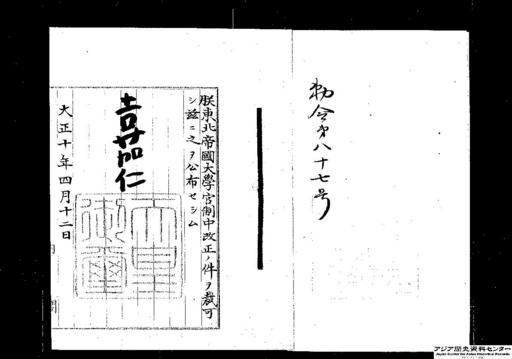 勅令第八十七号
朕東北帝國大學官制中改正ノ件ヲ裁可
シ茲ニ之ヲ公布セシム
嘉仁
天皇御璽
大正十年四月十二日
内閣
アジア歴史資料センター
Japan Center for Asian Historical Records